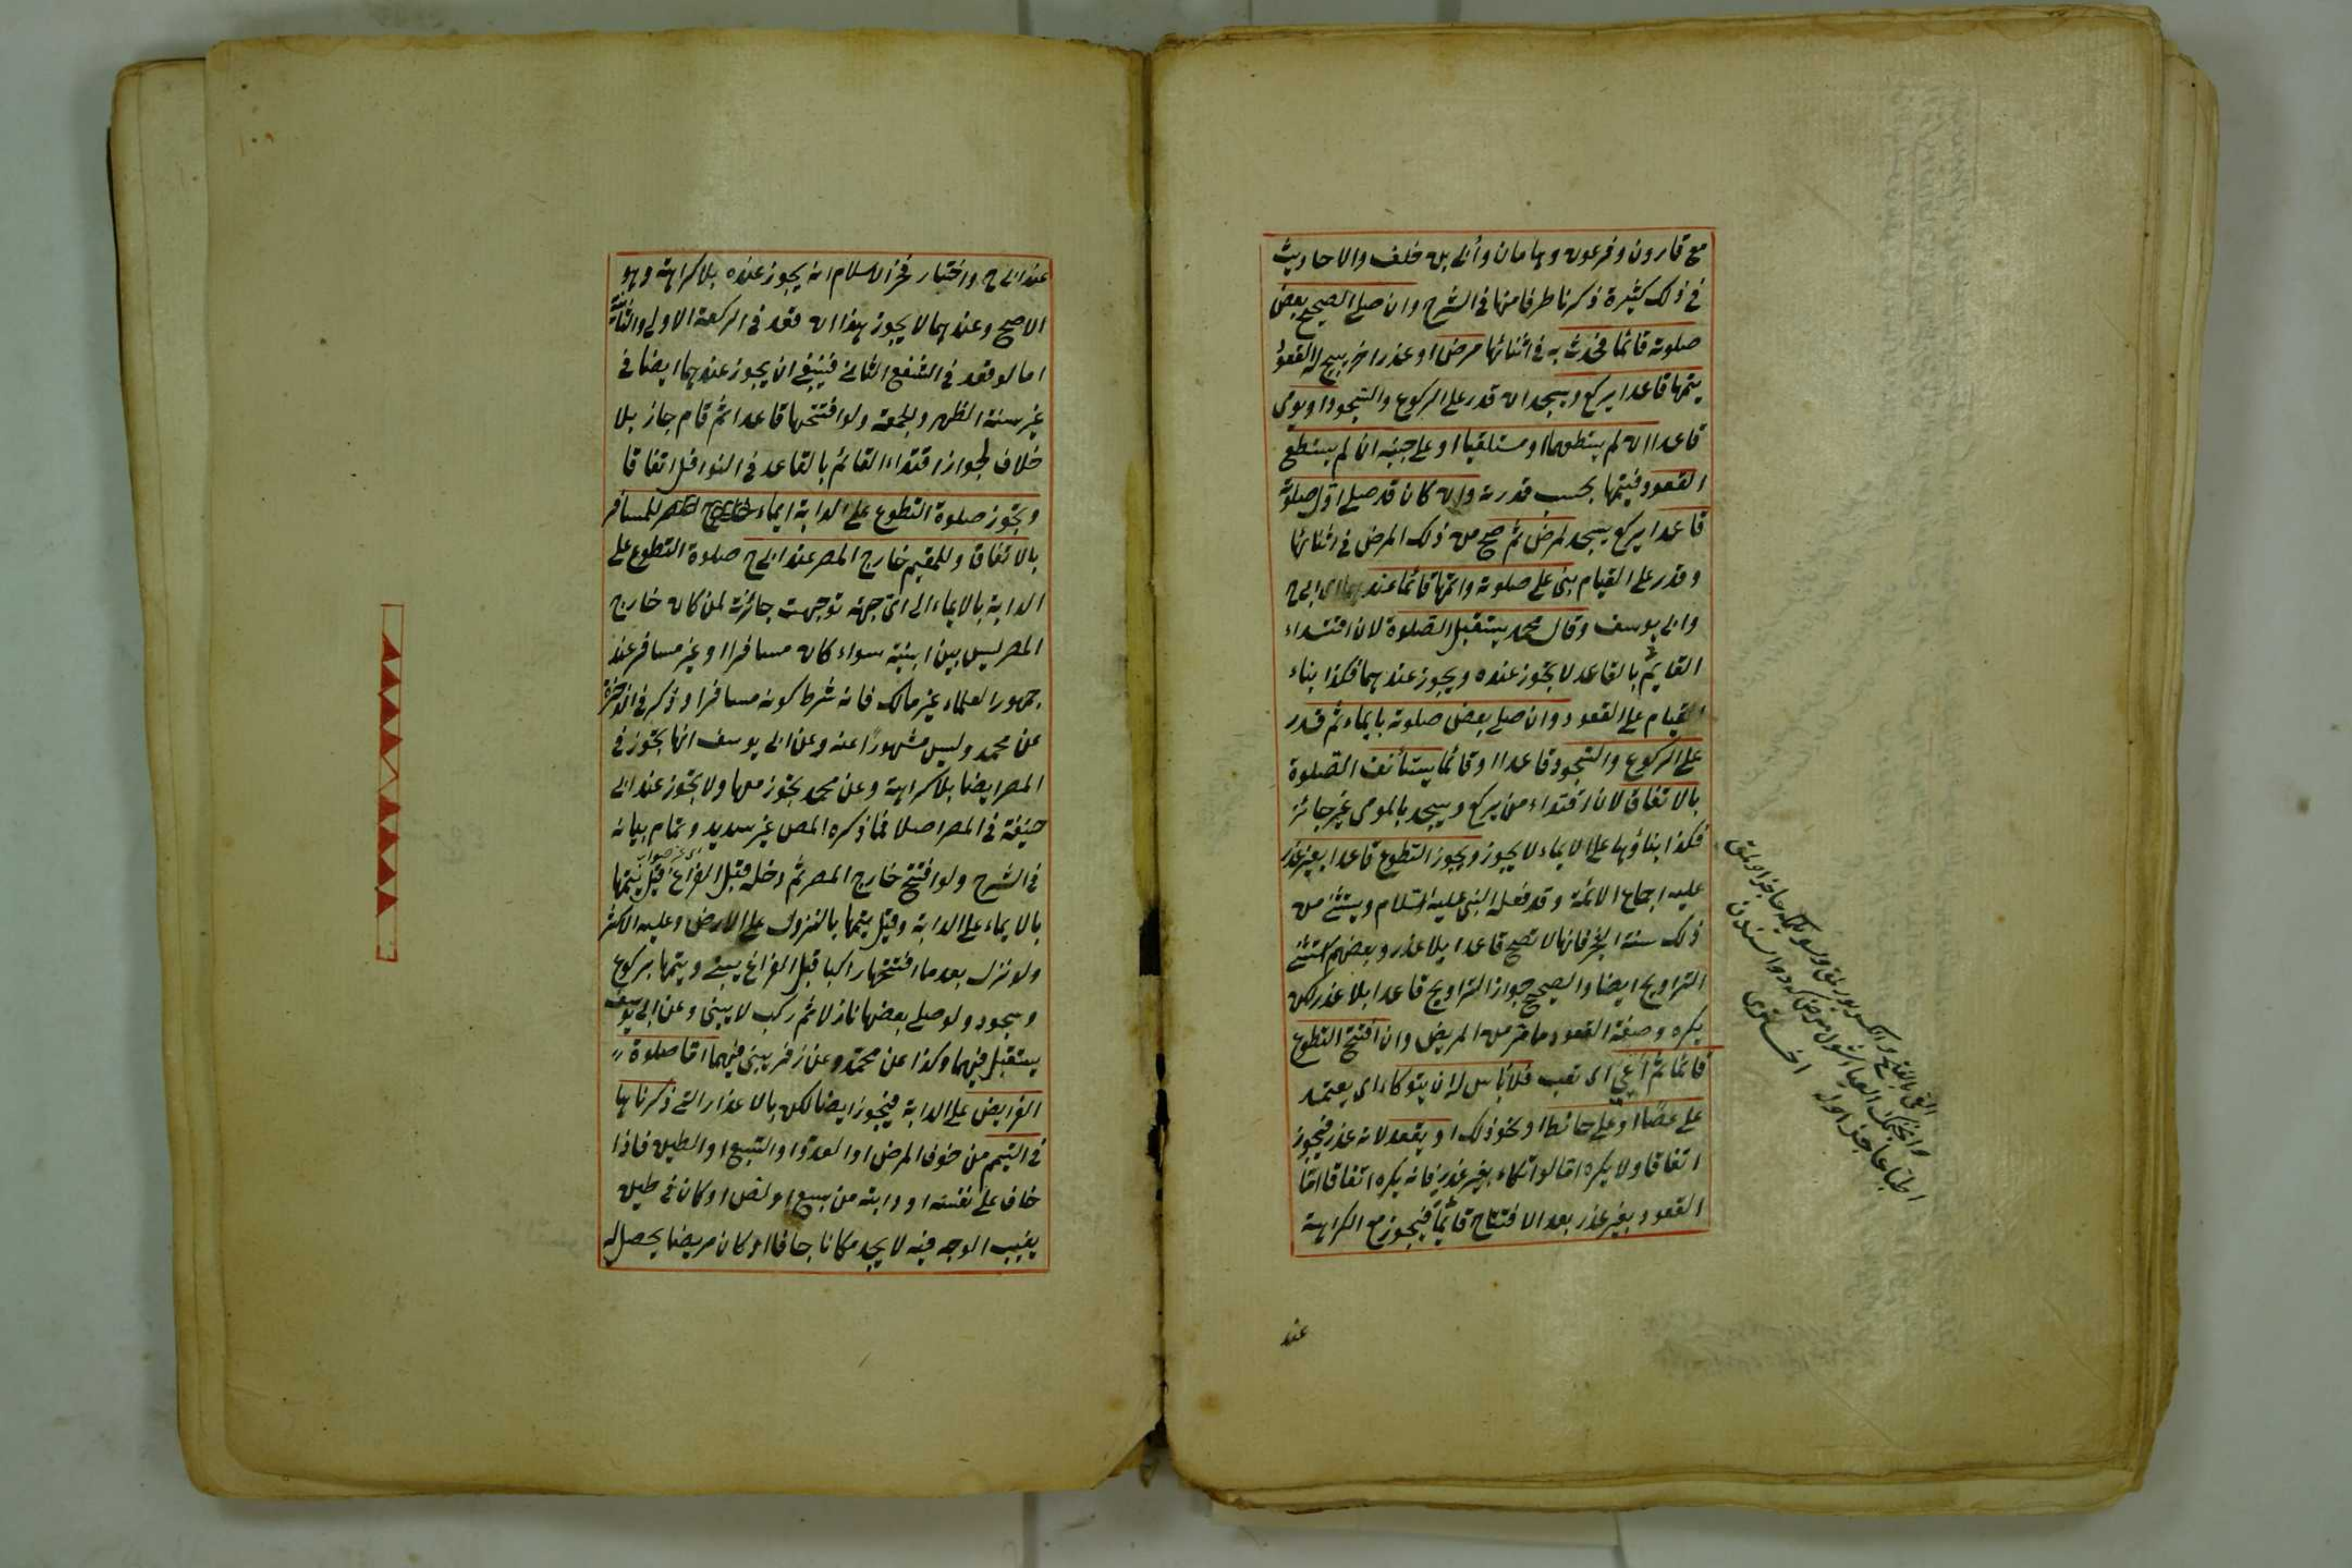 مع قارون وفرعون وهامان وأبي بن خلف والاحاديث
في ذلك كثيرة ذكرنا طرفا منها في الشرح وان صلى الصحيح بعض
صلوته قائما فحدث به في اثنائها مرض او عذر اخر يبيح له القعود
يتمها قاعدا يركع ويسجد ان قدر على الركوع والسجود او يومى
قاعدا ان لم يستطعهما او مستلقيا او على جنبه ان لم يستطع
القعود فيتمها بحسب قدرته وان كان قد صلى اول صلوته
قاعدا يركع يسجد لمرض ثم صح من ذلك المرض في اثنائها
وقدر على القيام بنى على صلوته واتمها قائما عند ابى ح
وابى يوسف وقال محمد يستقبل الصلوة لان اقتداء
القايم بالقاعد لا يجوز عنده ويجوز عندهما فكذا بناء
القيام على القعود وان صلى بعض صلوته بايماء ثم قدر
على الركوع والسجود قاعدا او قائما يستأنف الصلوة
بالاتفاق لان اقتداء من يركع ويسجد بالمومى غير جائز
فكذا بناؤها على الايماء لا يجوز ويجوز التطوع قاعدا بغير عذر
عليه اجماع الائمة وقد فعله النبى عليه السلام ويستثنى من
ذلك سنة الفجر فانها لا تصح قاعدا بلا عذر وبعضهم استثنى
التراويح ايضا والصحيح جواز التراويح قاعدا بلا عذر لكن
يكره وصفة القعود ما مر من المريض وان افتتح التطوع
قائما ثم أعيى اى تعب فلا بأس له ان يتوكاء اى يعتمد
على عصًا او على حائط او نحو ذلك او يقعد لانه عذر فيجوز
اتفاقا ولا يكره اما لو اتكاء بغير عذر فانه يكره اتفاقا اما
القعود بغير عذر بعد الافتتاح قائماً فيجوز مع الكراهة
عند
عند ابى ح واختيار فخر الاسلام انه يجوز عنده بلا كراهة وهو
الاصح وعندهما لا يجوز هذا ان قعد في الركعة الاولى والثانية
اما لو قعد في الشفع الثانى فينبغى ان يجوز عندهما ايضا في
غير سنة الظهر والجمعة ولو افتتحها قاعدا ثم قام جاز بلا
خلاف لجواز اقتداء القائم بالقاعد في النوافل اتفاقا
وتجوز صلوة التطوع على الدابة ايماء للمسافر
بالاتفاق وللمقيم خارج المصر عند ابى ح صلوة التطوع على
الدابة بالايماء الى اى جهة توجهت جائزة لمن كان خارج
المصر ليس بين ابنية سواء كان مسافرا او غير مسافر عند
جمهور العلماء غير مالك فانه شرط كونه مسافرا وذكر في الذخيرة
عن محمد وليس مشهوراً عنه وعن ابى يوسف انها تجوز في
المصر ايضا بلا كراهة وعن محمد تجوز معها ولا تجوز عند ابى
حنيفة في المصر اصلا فما ذكره المص غير سديد وتمام بيانه
في الشرح ولو افتتح خارج المصر ثم دخله قبل الفراغ قيل يتمها
بالايماء على الدابة وقيل يتمها بالنزول على الارض وعليه الاكثر
ولو نزل بعد ما افتتحها راكبا قبل الفراغ يبنى ويتمها بركوع
وسجود ولو صلى بعضها نازلا ثم ركب لا يبنى وعن ابى يوسف
يستقبل فيهما وكذا عن محمد وعن زفر يبنى فيهما اما صلوة
الفرايض على الدابة فيجوز ايضا لكن بالاعذار التى ذكرناها
في التيمم من خوف المرض او العدو او السبع او الطين فاذا
خاف على نفسه او دابته من سبع او لص او كان في طين
يغيب الوجه فيه لا يجد مكانا جافا او كان مريضا يحصل له